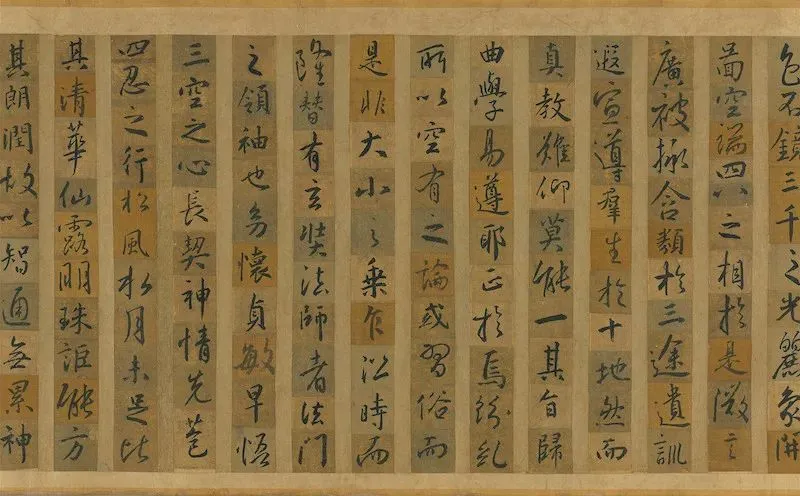 色不鏡三千之光麗象開
啚空端四八之相於是微言
廣被拯含類於三途遺訓
遐宣導羣生於十地然而
真教難仰莫能一其旨歸
曲學易遵耶正於焉紛糺
所以空有之論或習俗而
是非大小之乘乍沿時而
隆替有玄奘法師者法門
之領袖也幼懷貞敏早悟
三空之心長契神情先苞
四忍之行松風水月未足比
其清華仙露明珠詎能方
其朗潤故以智通無累神